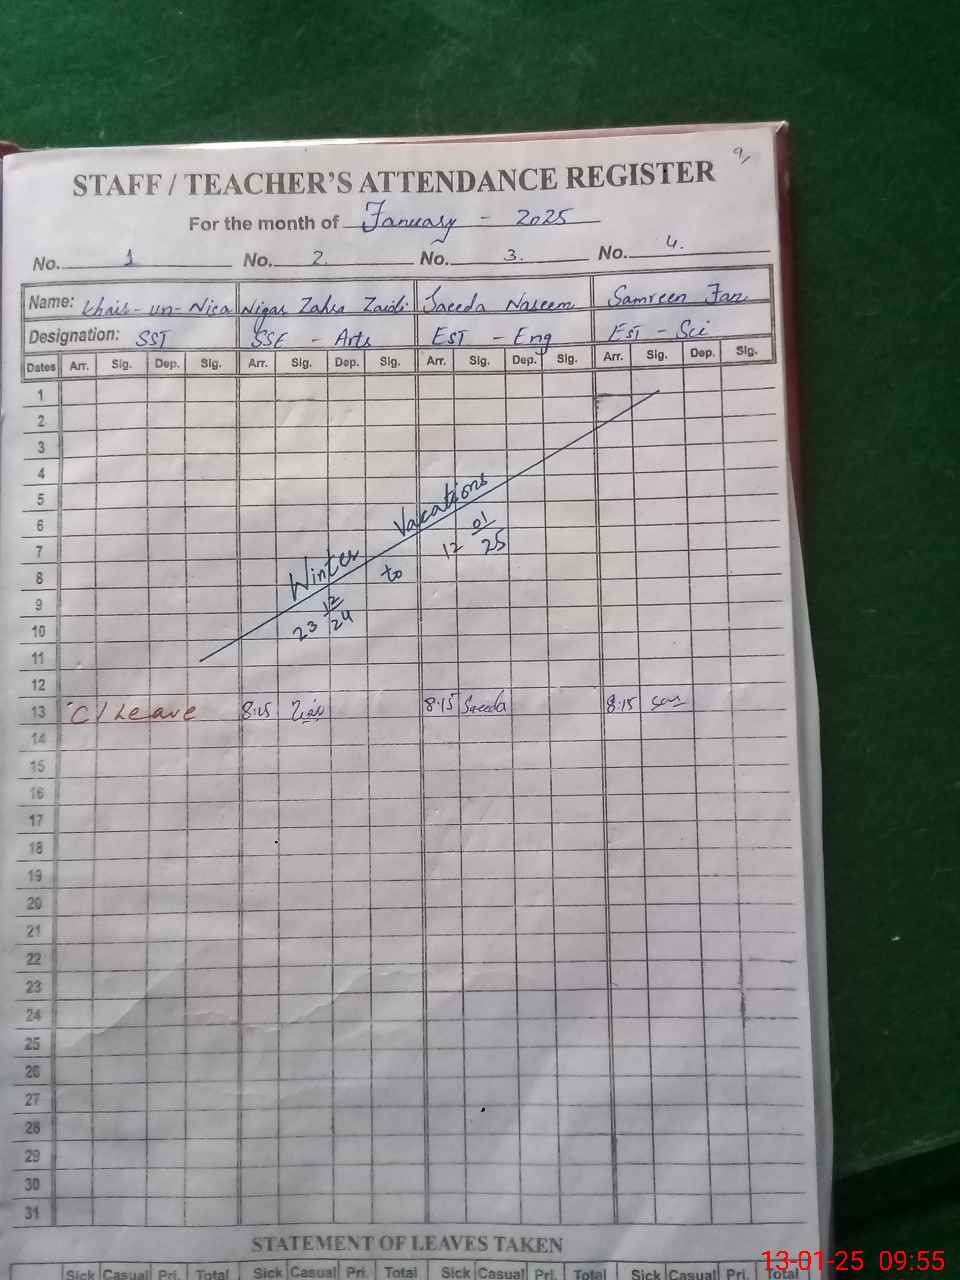 9/
STAFF / TEACHER'S ATTENDANCE REGISTER
For the month of January - 2025
No. 1 No. 2. No. 3. No. 4.
Name: Khair-un-Nisa Nigar Zahra Zaidi Saeeda Naseem Samreen Faz
Designation: SST SSE - Arts EST - Eng EST - Sci
Dates Arr. Sig. Dep. Sig. Arr. Sig. Dep. Sig. Arr. Sig. Dep. Sig. Arr. Sig. Dep. Sig.
1
2
3
4
5
6
7
8
9
10
11
12
Winter Vacations
23 12/24 to 12 01/25
13 C/Leave 8:15 8:15 Saeeda 8:15
14
15
16
17
18
19
20
21
22
23
24
25
26
27
28
29
30
31
STATEMENT OF LEAVES TAKEN
Sick Casual Pri. Total Sick Casual Pri. Total Sick Casual Pri. Total Sick Casual Pri. Total
13-01-25 09:55